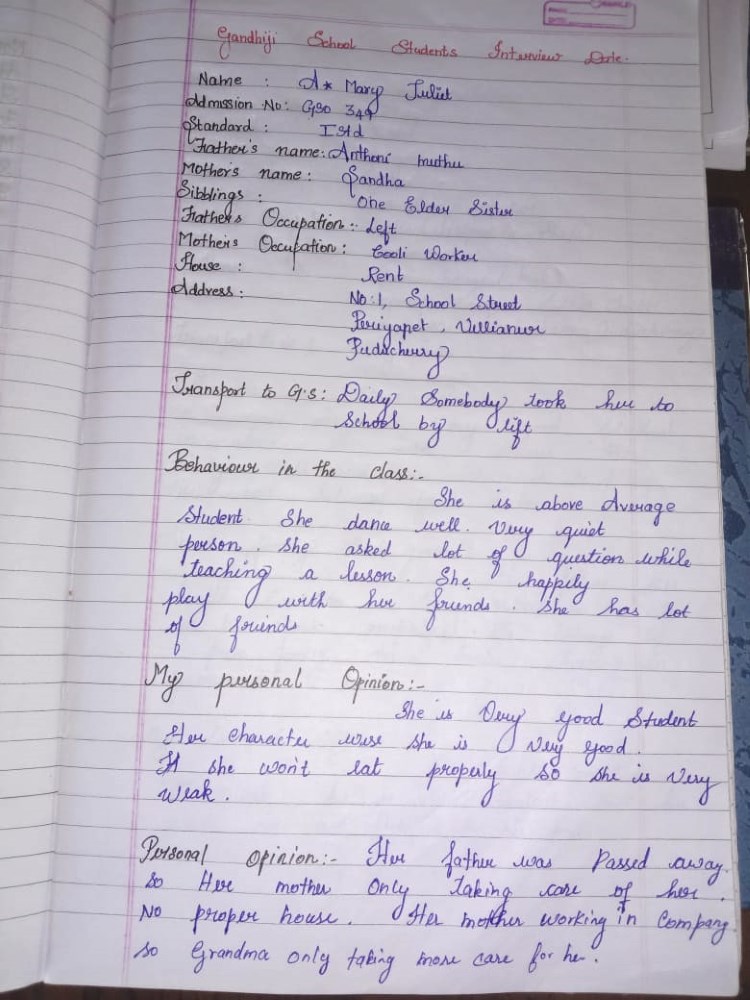 Gandhiji School Students Interview Date.
Name : A* Mary Juliet
Admission No: GSO 349
Standard : I Std
Father's name: Anthoni muthu
Mother's name: Sandha
Sibblings : One Elder Sister
Fathers Occupation:- Left
Mothers Occupation: Cooli Worker
House : Rent
Address: No:1, School Street
Periyapet, Villianur
Puducherry
Transport to G.S: Daily Somebody took her to
School by lift
Behaviour in the class:-
She is above Average
Student. She dance well. Very quiet
person. She asked lot of question while
teaching a lesson. She happily
play with her friends. She has lot
of friends
My personal Opinion:-
She is Very good Student
Her character wise she is very good.
If she won't eat properly so she is very
weak.
Personal Opinion:- Her father was Passed away.
so Her mother Only taking care of her.
No proper house. Her mother working in Company.
so Grandma only taking more care for her.